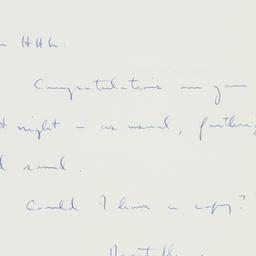 HHL:
Congratulations on your
night - as usual,
sound.
Could I have a copy?